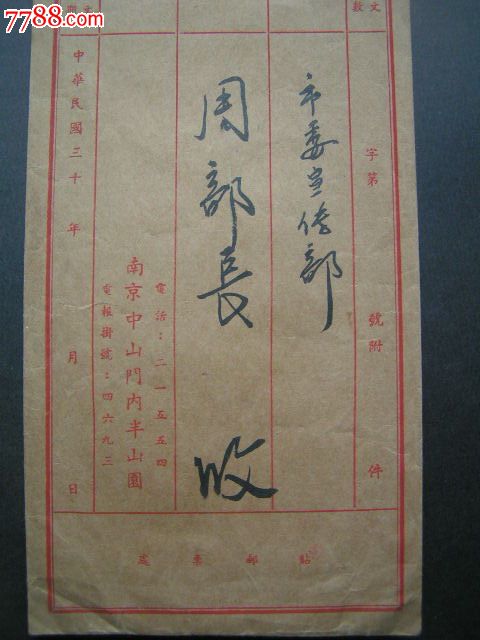 7788.com
文
字第 號附 件
市委宣传部
周部長 收
電話：二一五五四
南京中山門內半山園
電報掛號：四六九三
中華民國三十 年 月 日
貼郵票處